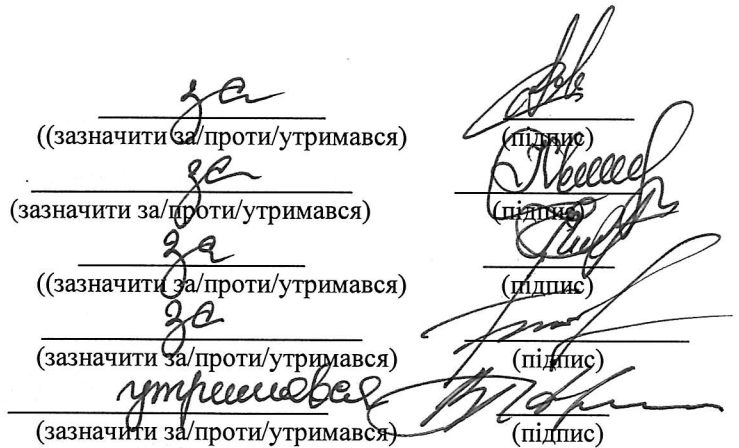 за
((зазначити за/проти/утримався) (підпис)
за
(зазначити за/проти/утримався) (підпис)
за
((зазначити за/проти/утримався) (підпис)
за
(зазначити за/проти/утримався) (підпис)
утримався
(зазначити за/проти/утримався) (підпис)